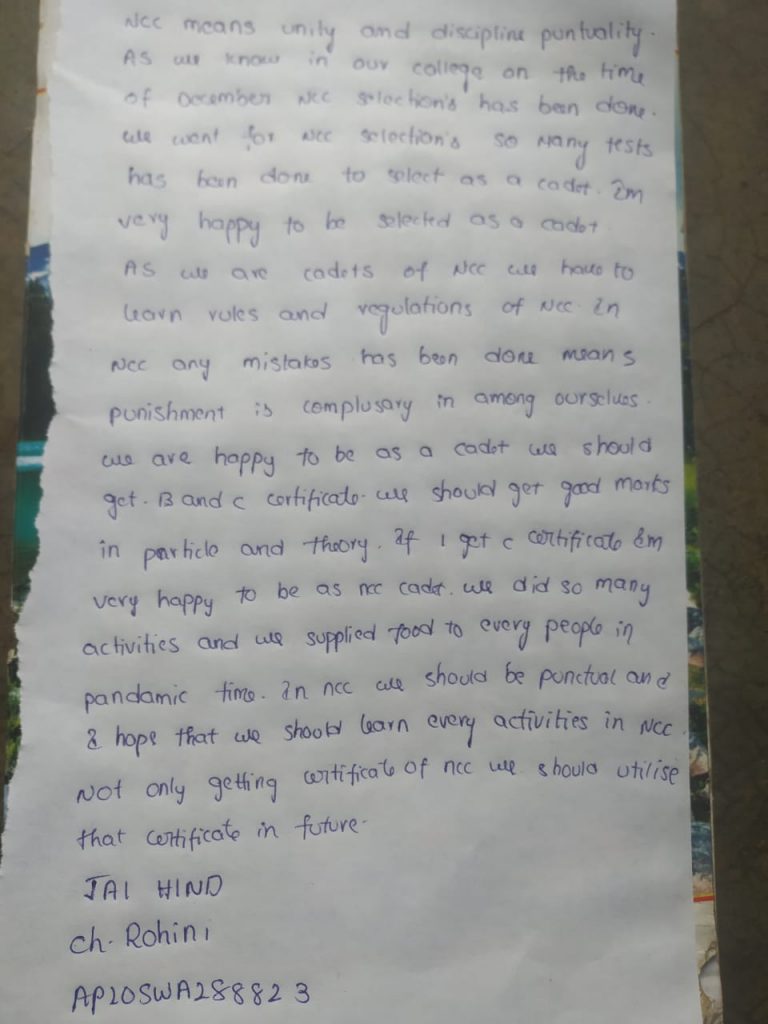 NCC means unity and discipline puntuality.
As we know in our college on the time
of December NCC selection's has been done.
we went for NCC selection's so many tests
has been done to select as a cadet. Im
very happy to be selected as a cadet
As we are cadets of NCC we have to
learn rules and regulations of NCC. In
NCC any mistakes has been done means
punishment is complusary in among ourselves.
we are happy to be as a cadet we should
get. B and C certificate. we should get good marks
in particle and theory. If I get C certificate Im
very happy to be as ncc cadet. we did so many
activities and we supplied food to every people in
pandamic time. In ncc we should be punctual and
I hope that we should learn every activities in NCC.
Not only getting certificate of ncc we should utilise
that certificate in future.
JAI HIND
ch. Rohini
AP20SWA288823